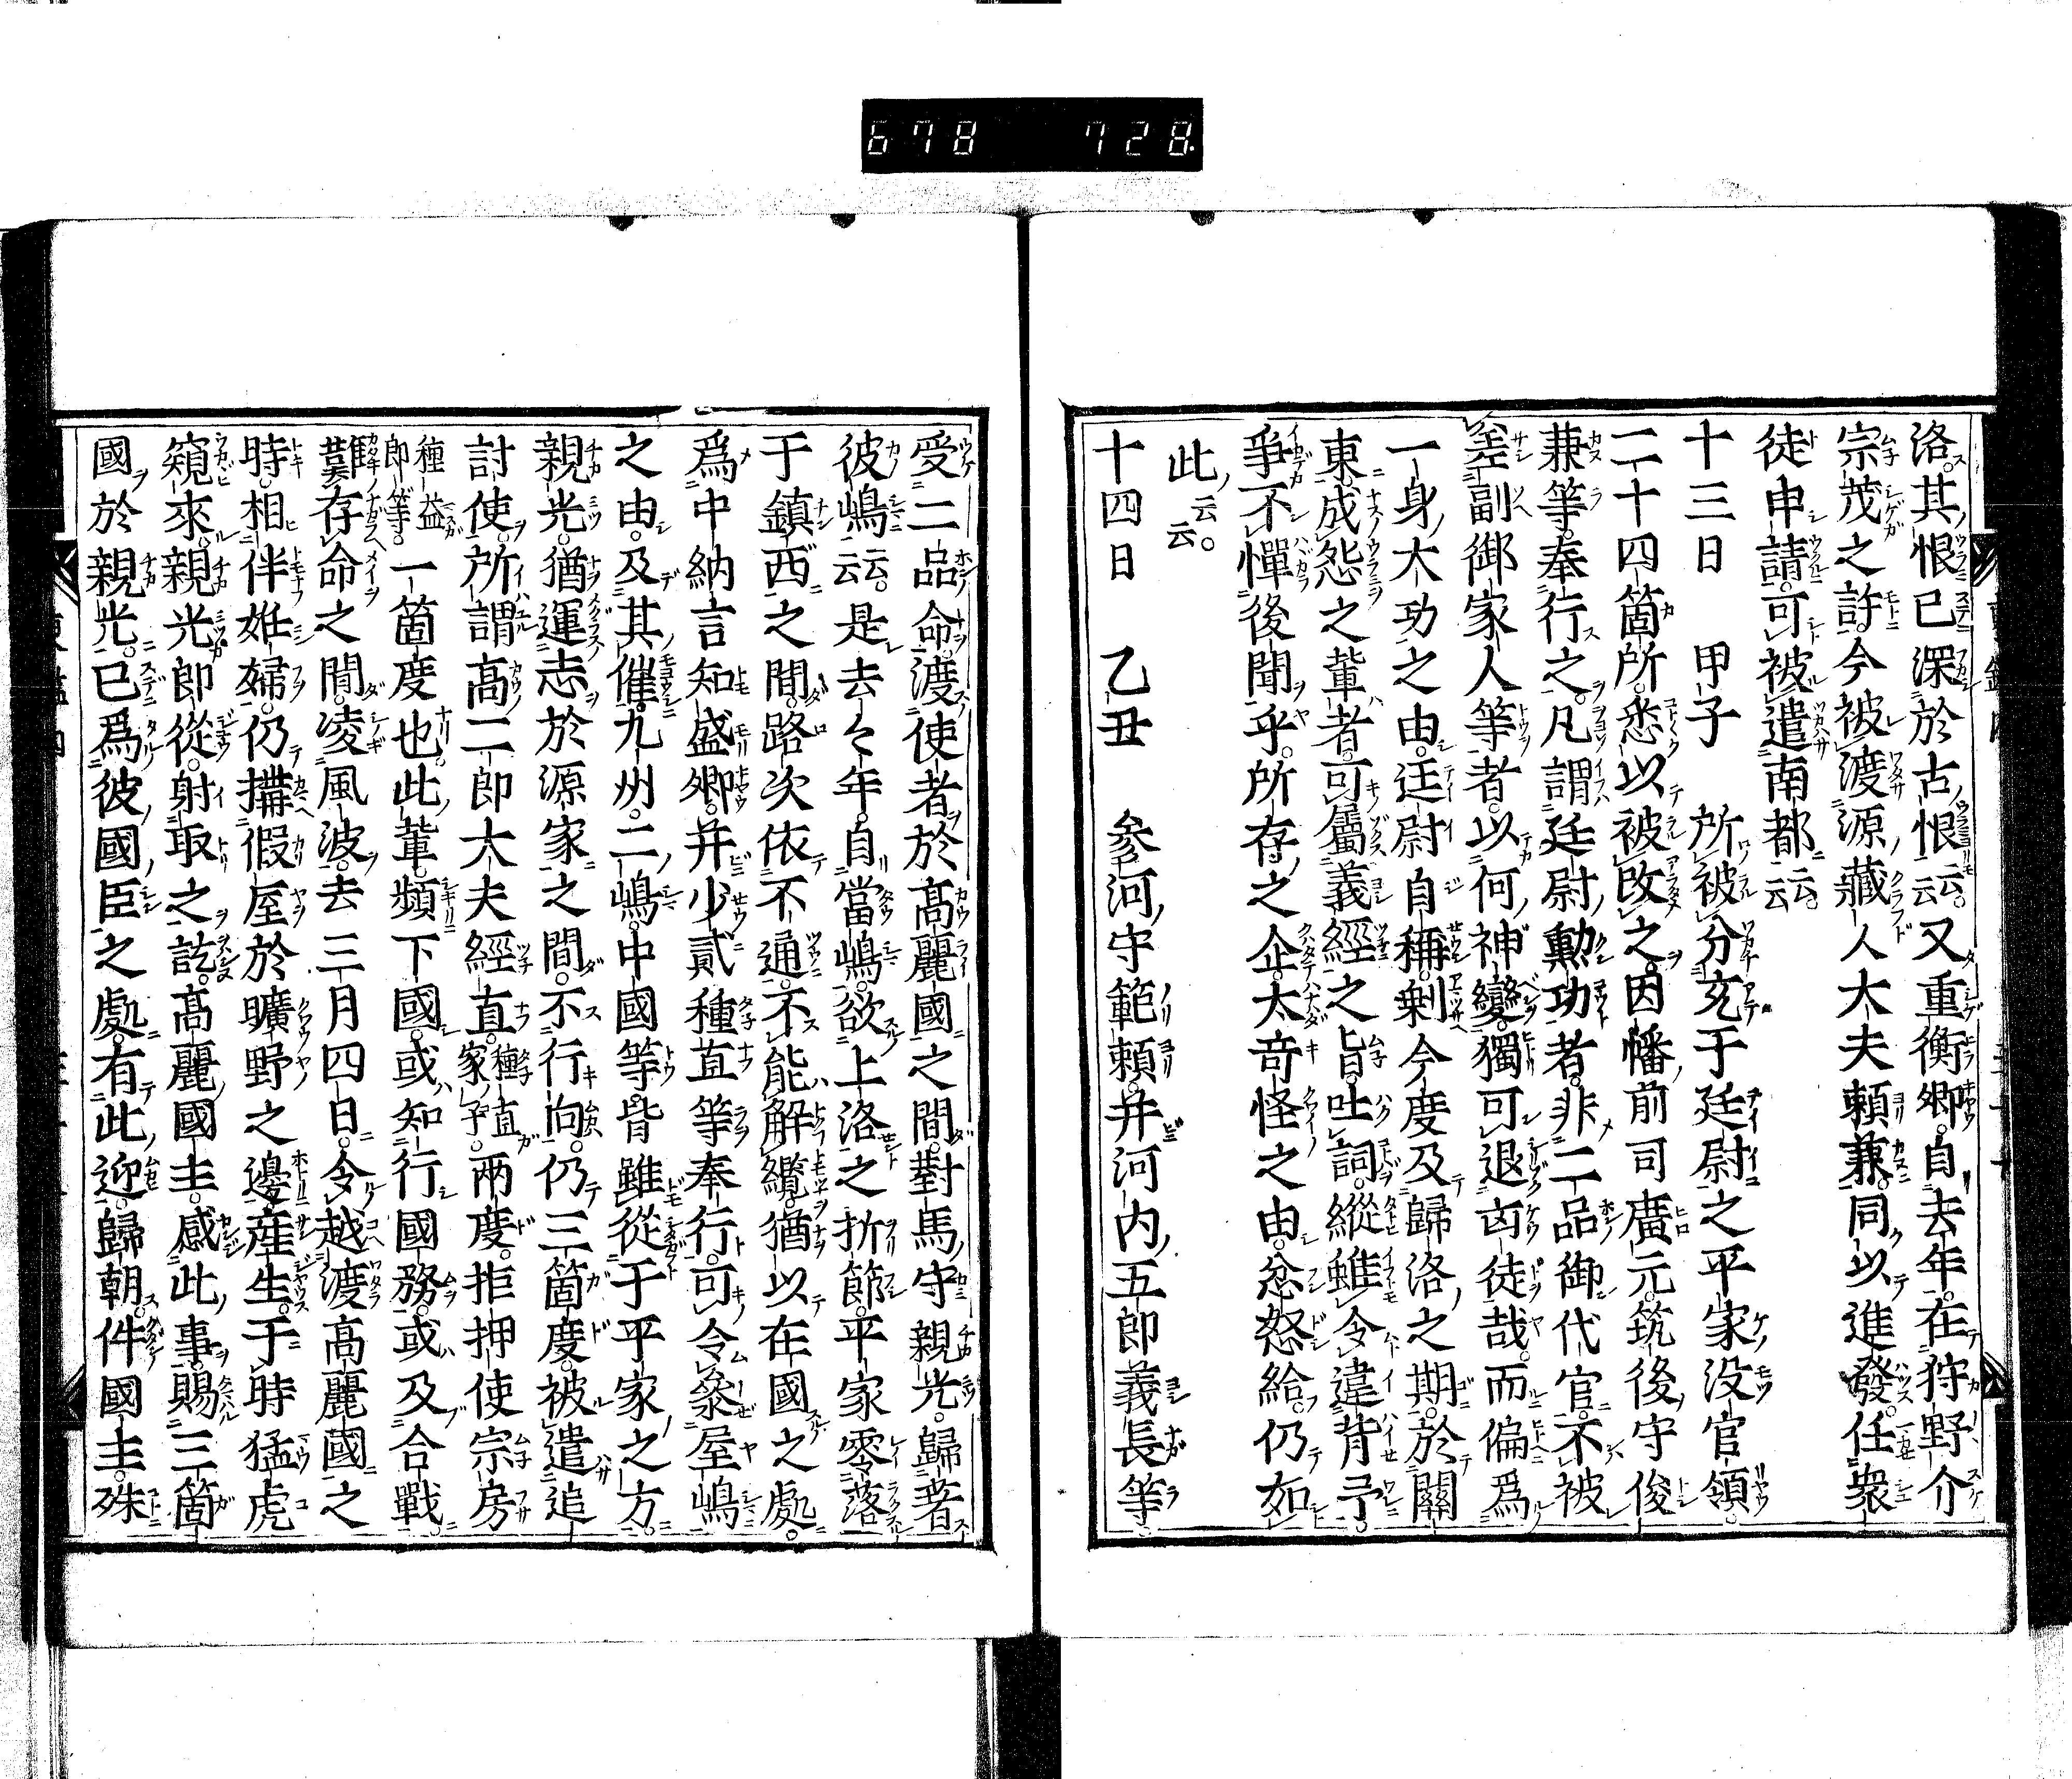 678 728
洛。其恨已深於古恨云云。又重衡卿。自去年。在狩野介
宗茂之許。今被渡源藏人大夫賴兼。同以進發。任衆
徒申請。可被遣南都云云。
十三日 甲子 所被分充于廷尉之平家没官領
二十四箇所。悉以被改之。因幡前司廣元。筑後守俊
兼等。奉行之。凡謂廷尉勳功者。非二品御代官。不被
差副御家人等者。以何神變。獨可退凶徒哉。而偏爲
一身大功之由。廷尉自稱。剩今度及歸洛之期。於關
東。成怨之輩者。可屬義經之旨。吐詞。縱雖令違背予。
爭不憚後聞乎。所存之企。太奇怪之由。忿怒給。仍如
此云云。
十四日 乙丑 參河守範賴。并河內五郎義長等。
受二品命。渡使者於高麗國之間。對馬守親光。歸著
彼嶋云云。是去々年。自當嶋。欲上洛之折節。平家零落
于鎮西之間。路次依不通。不能解纜。猶以在國之處。
爲中納言知盛卿。并少貳種直等奉行。可令參屋嶋
之由。及其催。九州二嶋。中國等。皆雖從于平家之方。
親光。猶運志於源家之間。不行向。仍三箇度。被遣追
討使。所謂高二郎大夫經直。種直家子。兩度。拒押使宗房
種益郎等。一箇度也。此輩。頻下國。或知行國務。或及合戰。
難存命之間。凌風波。去三月四日。令越渡高麗國之
時。相伴姙婦。仍搆假屋於曠野之邊。産生。于時猛虎
窺來。親光郎從。射取之訖。高麗國主。感此事。賜三箇
國於親光。已爲彼國臣之處。有此迎。歸朝。件國主。殊